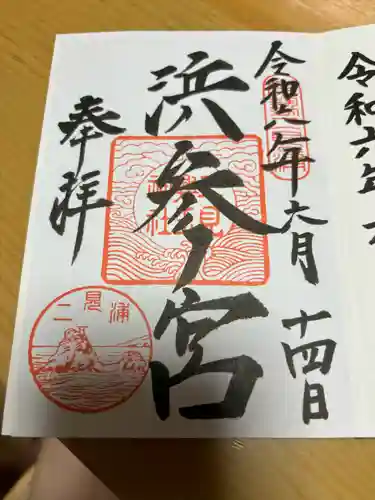 令和六年
令和六年六月十四日
浜参宮
奉拝
二見浦